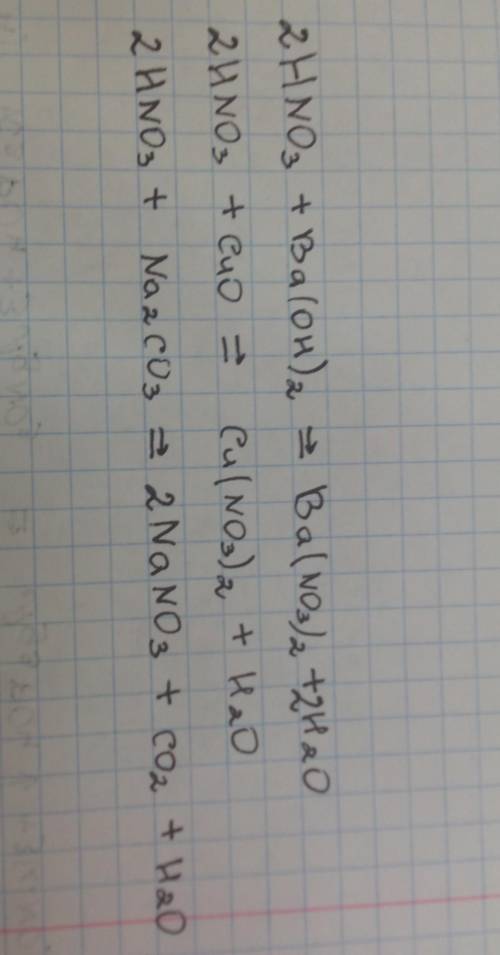 2HNO₃ + Ba(OH)₂ ⇒ Ba(NO₃)₂ + 2H₂O
2HNO₃ + CuO ⇒ Cu(NO₃)₂ + H₂O
2HNO₃ + Na₂CO₃ ⇒ 2NaNO₃ + CO₂ + H₂O